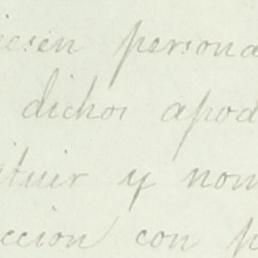 iesen persona
dichos apod
ituir y nom
ccion con p